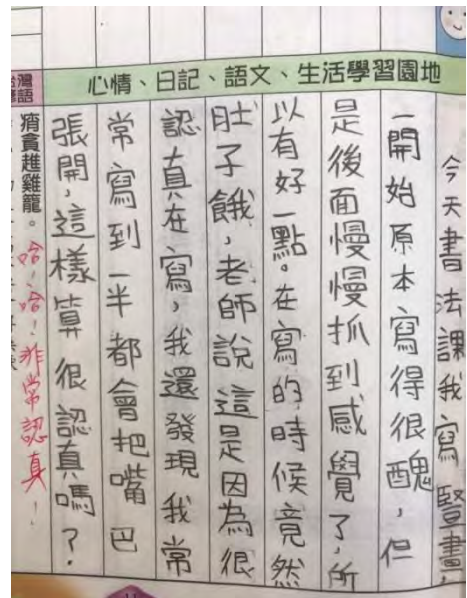 心情、日記、語文、生活學習園地
今天書法課我寫豎畫,
一開始原本寫得很醜,但
是後面慢慢抓到感覺了,所
以有好一點。在寫的時候竟然
肚子餓,老師說這是因為很
認真在寫,我還發現我常
常寫到一半都會把嘴巴
張開,這樣算很認真嗎?
哈!哈!非常認真!
灣語
痟貪䢢雞籠。